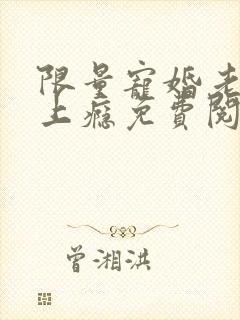 限量寵婚老
上癮免費閱
曾湘洪